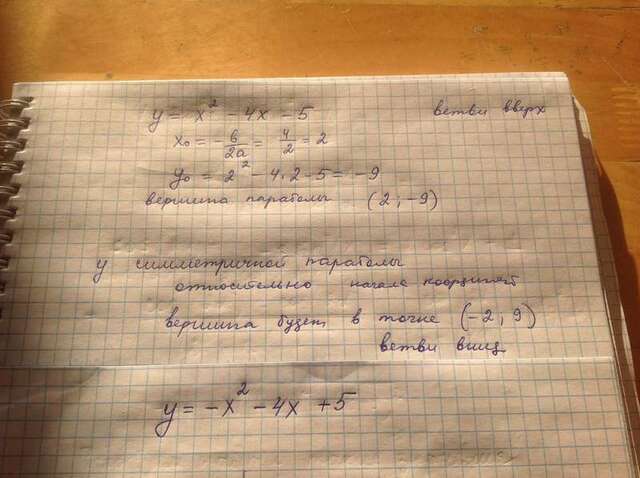 y = x² - 4x - 5 ветви вверх
x₀ = -b/2a = 4/2 = 2
y₀ = 2² - 4·2 - 5 = -9
вершина параболы (2; -9)
у симметричной параболы
относительно начала координат
вершина будет в точке (-2, 9)
ветви вниз
y = -x² - 4x + 5